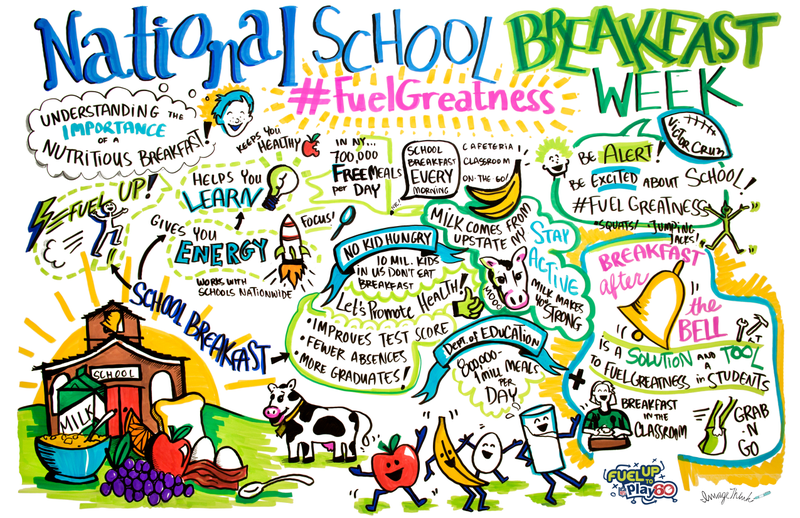 National SCHOOL BREAKFAST
WEEK
#FuelGreatness
UNDERSTANDING THE
IMPORTANCE
OF A
NUTRITIOUS BREAKFAST!
KEEPS YOU
HEALTHY
IN NY...
700,000
FREE MEALS
per DAY
SCHOOL
BREAKFAST
EVERY
MORNING
CAFETERIA!
CLASSROOM
ON-THE-GO!
VICTOR CRUZ
BE ALERT!
BE EXCITED ABOUT SCHOOL!
#FUEL GREATNESS
•SQUATS! •JUMPING
JACKS!
FUEL UP!
HELPS YOU
LEARN
GIVES YOU
ENERGY
FOCUS!
WORKS WITH
SCHOOLS NATIONWIDE
NO KID HUNGRY
10 MIL. KIDS
IN US DON'T EAT
BREAKFAST
MILK COMES FROM
UPSTATE NY
STAY
ACTIVE
MOOO
MILK MAKES
YOU STRONG
Let's Promote HEALTH!
•IMPROVES TEST SCORE
•FEWER ABSENCES
•MORE GRADUATES!
Dept. of EDUCATION
800,000-
1 mill MEALS
PER
DAY
SCHOOL BREAKFAST
SCHOOL
MILK
BREAKFAST
after
the
BELL
IS A SOLUTION AND A TOOL
TO FUEL GREATNESS in STUDENTS
+
BREAKFAST
IN THE
CLASSROOM
GRAB
'N
GO
FUEL UP
TO
Play 60
ImageThink